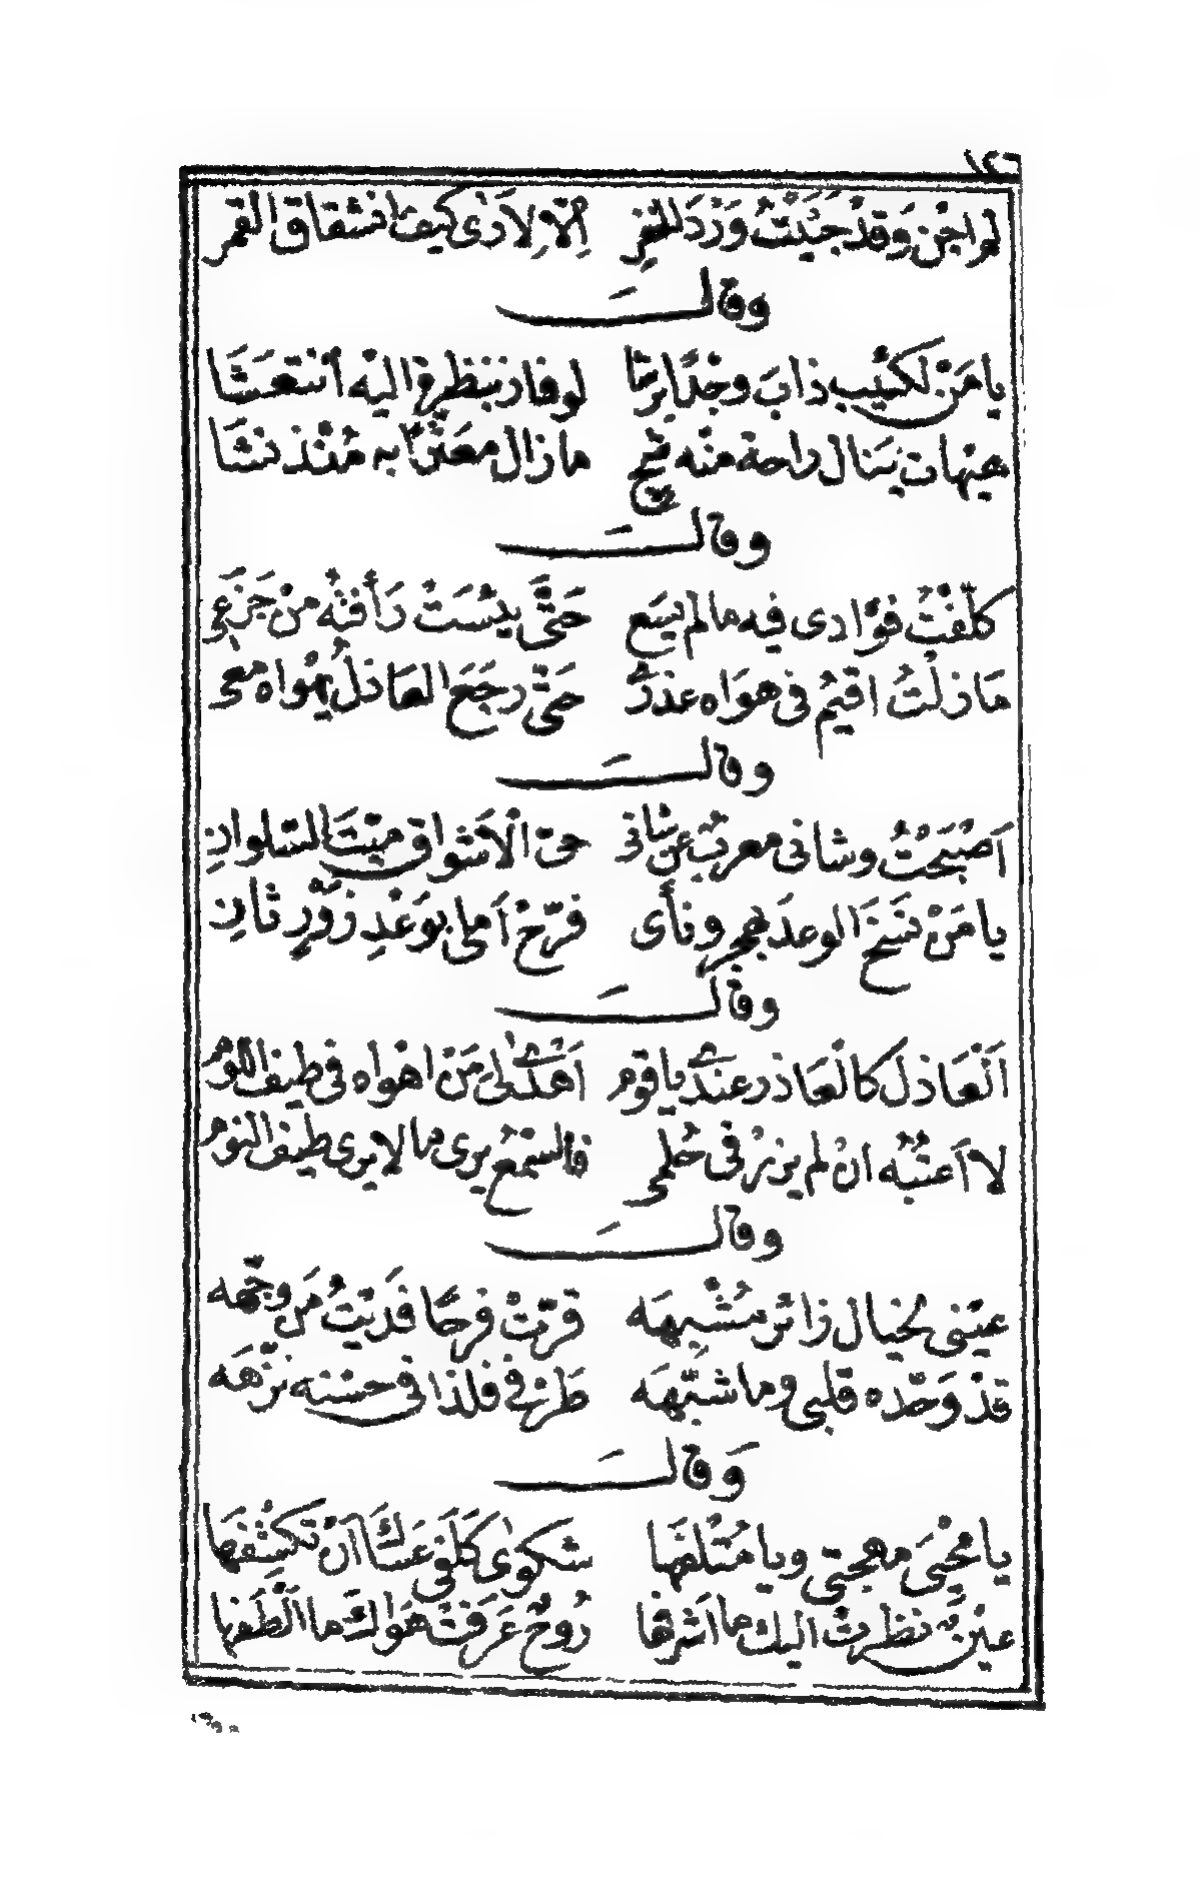 ١٤٦
لم اجن وقد جنيت ورد الخفر إلا لادرى كيف انشقاق القمر
وقال
يا من لكئيب ذاب وجدا برشا لو فاز بنظرة اليه انتعشا
هيهات ينال راحة منه شج ما زال معثرا به منذ نشا
وقال
كلفت فؤادى فيه ما لم يسع حتى يئست رأفته من جزعى
ما زلت اقيم فى هواه عذرى حتى رجع العاذل يهواه معى
وقال
اصبحت وشانى معرب عن شانى حى الاشواق ميت السلوان
يا من نسخ الوعد بهجر ونأى فرح املى بوعد زور ثان
وقال
العاذل كالعاذر عندى يا قوم اهدى لى من اهواه فى طيف اللوم
لا اعتبه ان لم يزر فى حلمى فالسمع يرى ما لا يرى طيف النوم
وقال
عينى لخيال زائر مشبهه قرت فرحا فديت من وجهه
قد وحده قلبى وما شبهه طرفى فلذا فى حسنه نزهه
وقال
يا محيى مهجتى ويا متلفها شكوى كلفى عساك ان تكشفها
عين نظرت اليك ما اشرفها روح عرفت هواك ما الطفها